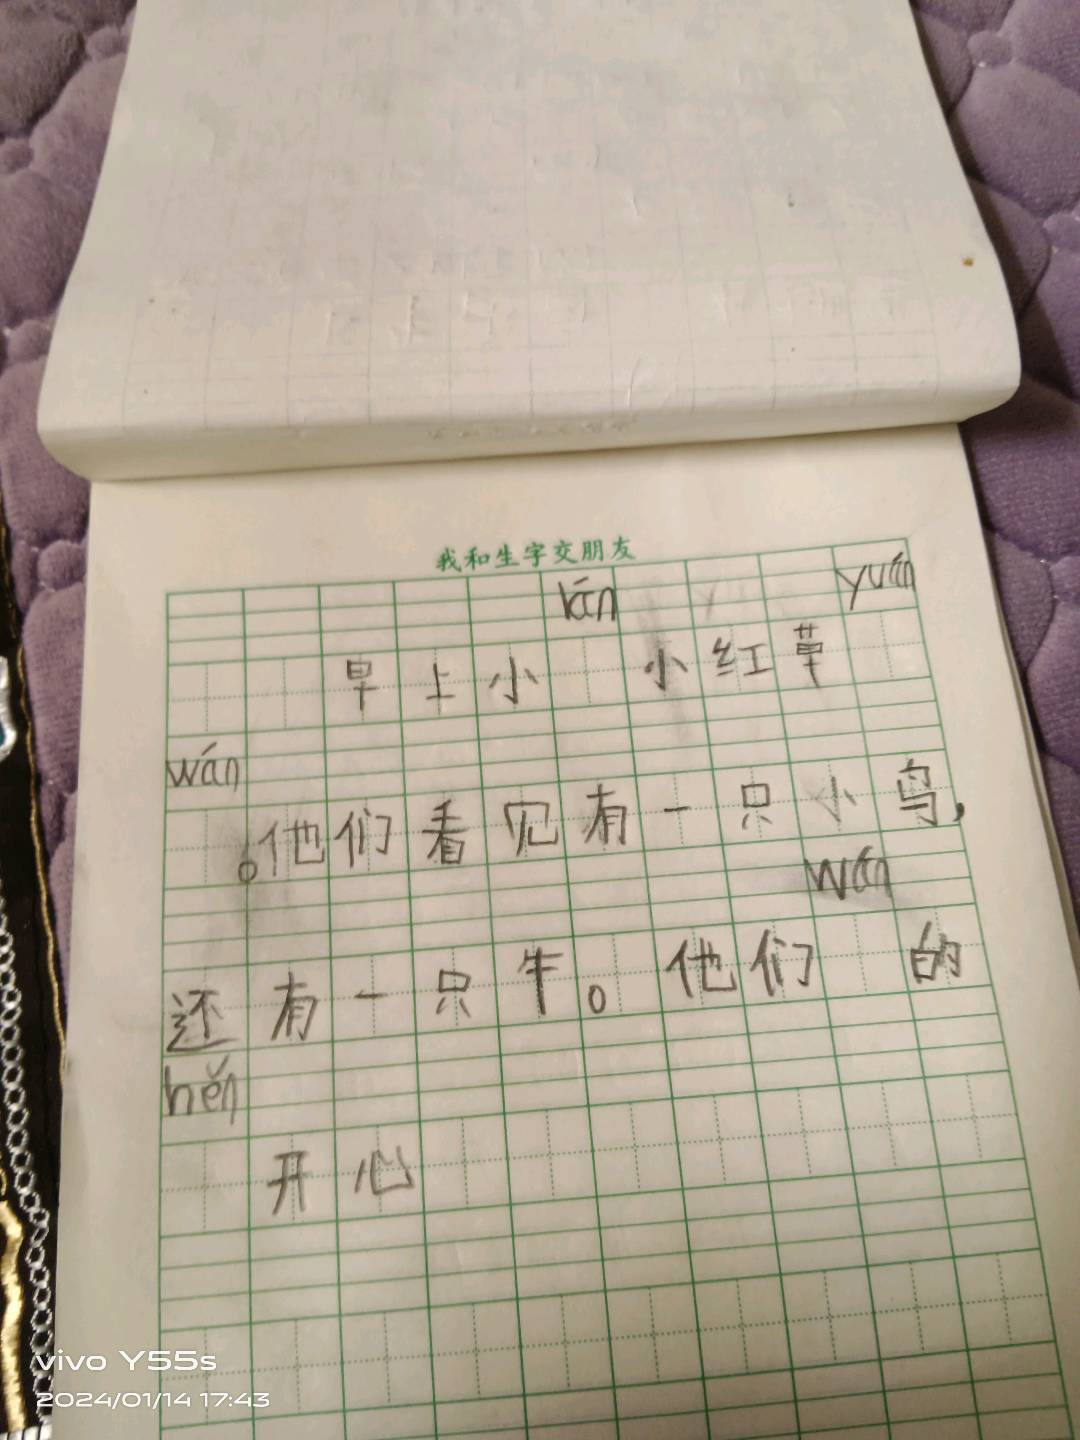 我和生字交朋友
lán yuán
早上小 小红草
wán
。他们看见有一只小鸟，
wán
还有一只牛。他们 的
hěn
开心
vivo Y55s
2024/01/14 17:43